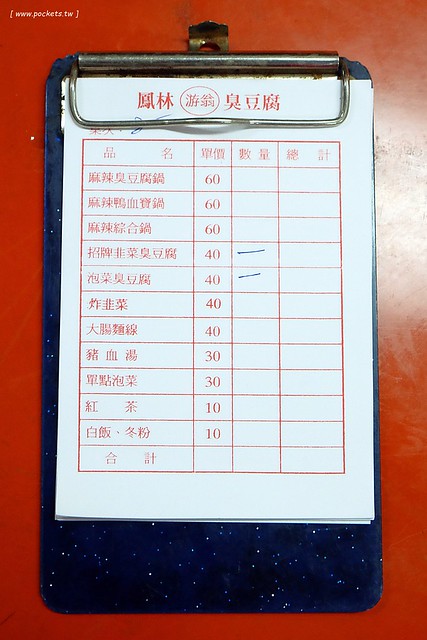 [ www.pockets.tw ]
鳳林 游翁 臭豆腐
品 名 單價 數 量 總 計
麻辣臭豆腐鍋 60
麻辣鴨血寶鍋 60
麻辣綜合鍋 60
招牌韭菜臭豆腐 40 一
泡菜臭豆腐 40 一
炸韭菜 40
大腸麵線 40
豬 血 湯 30
單點泡菜 30
紅 茶 10
白飯、冬粉 10
合 計